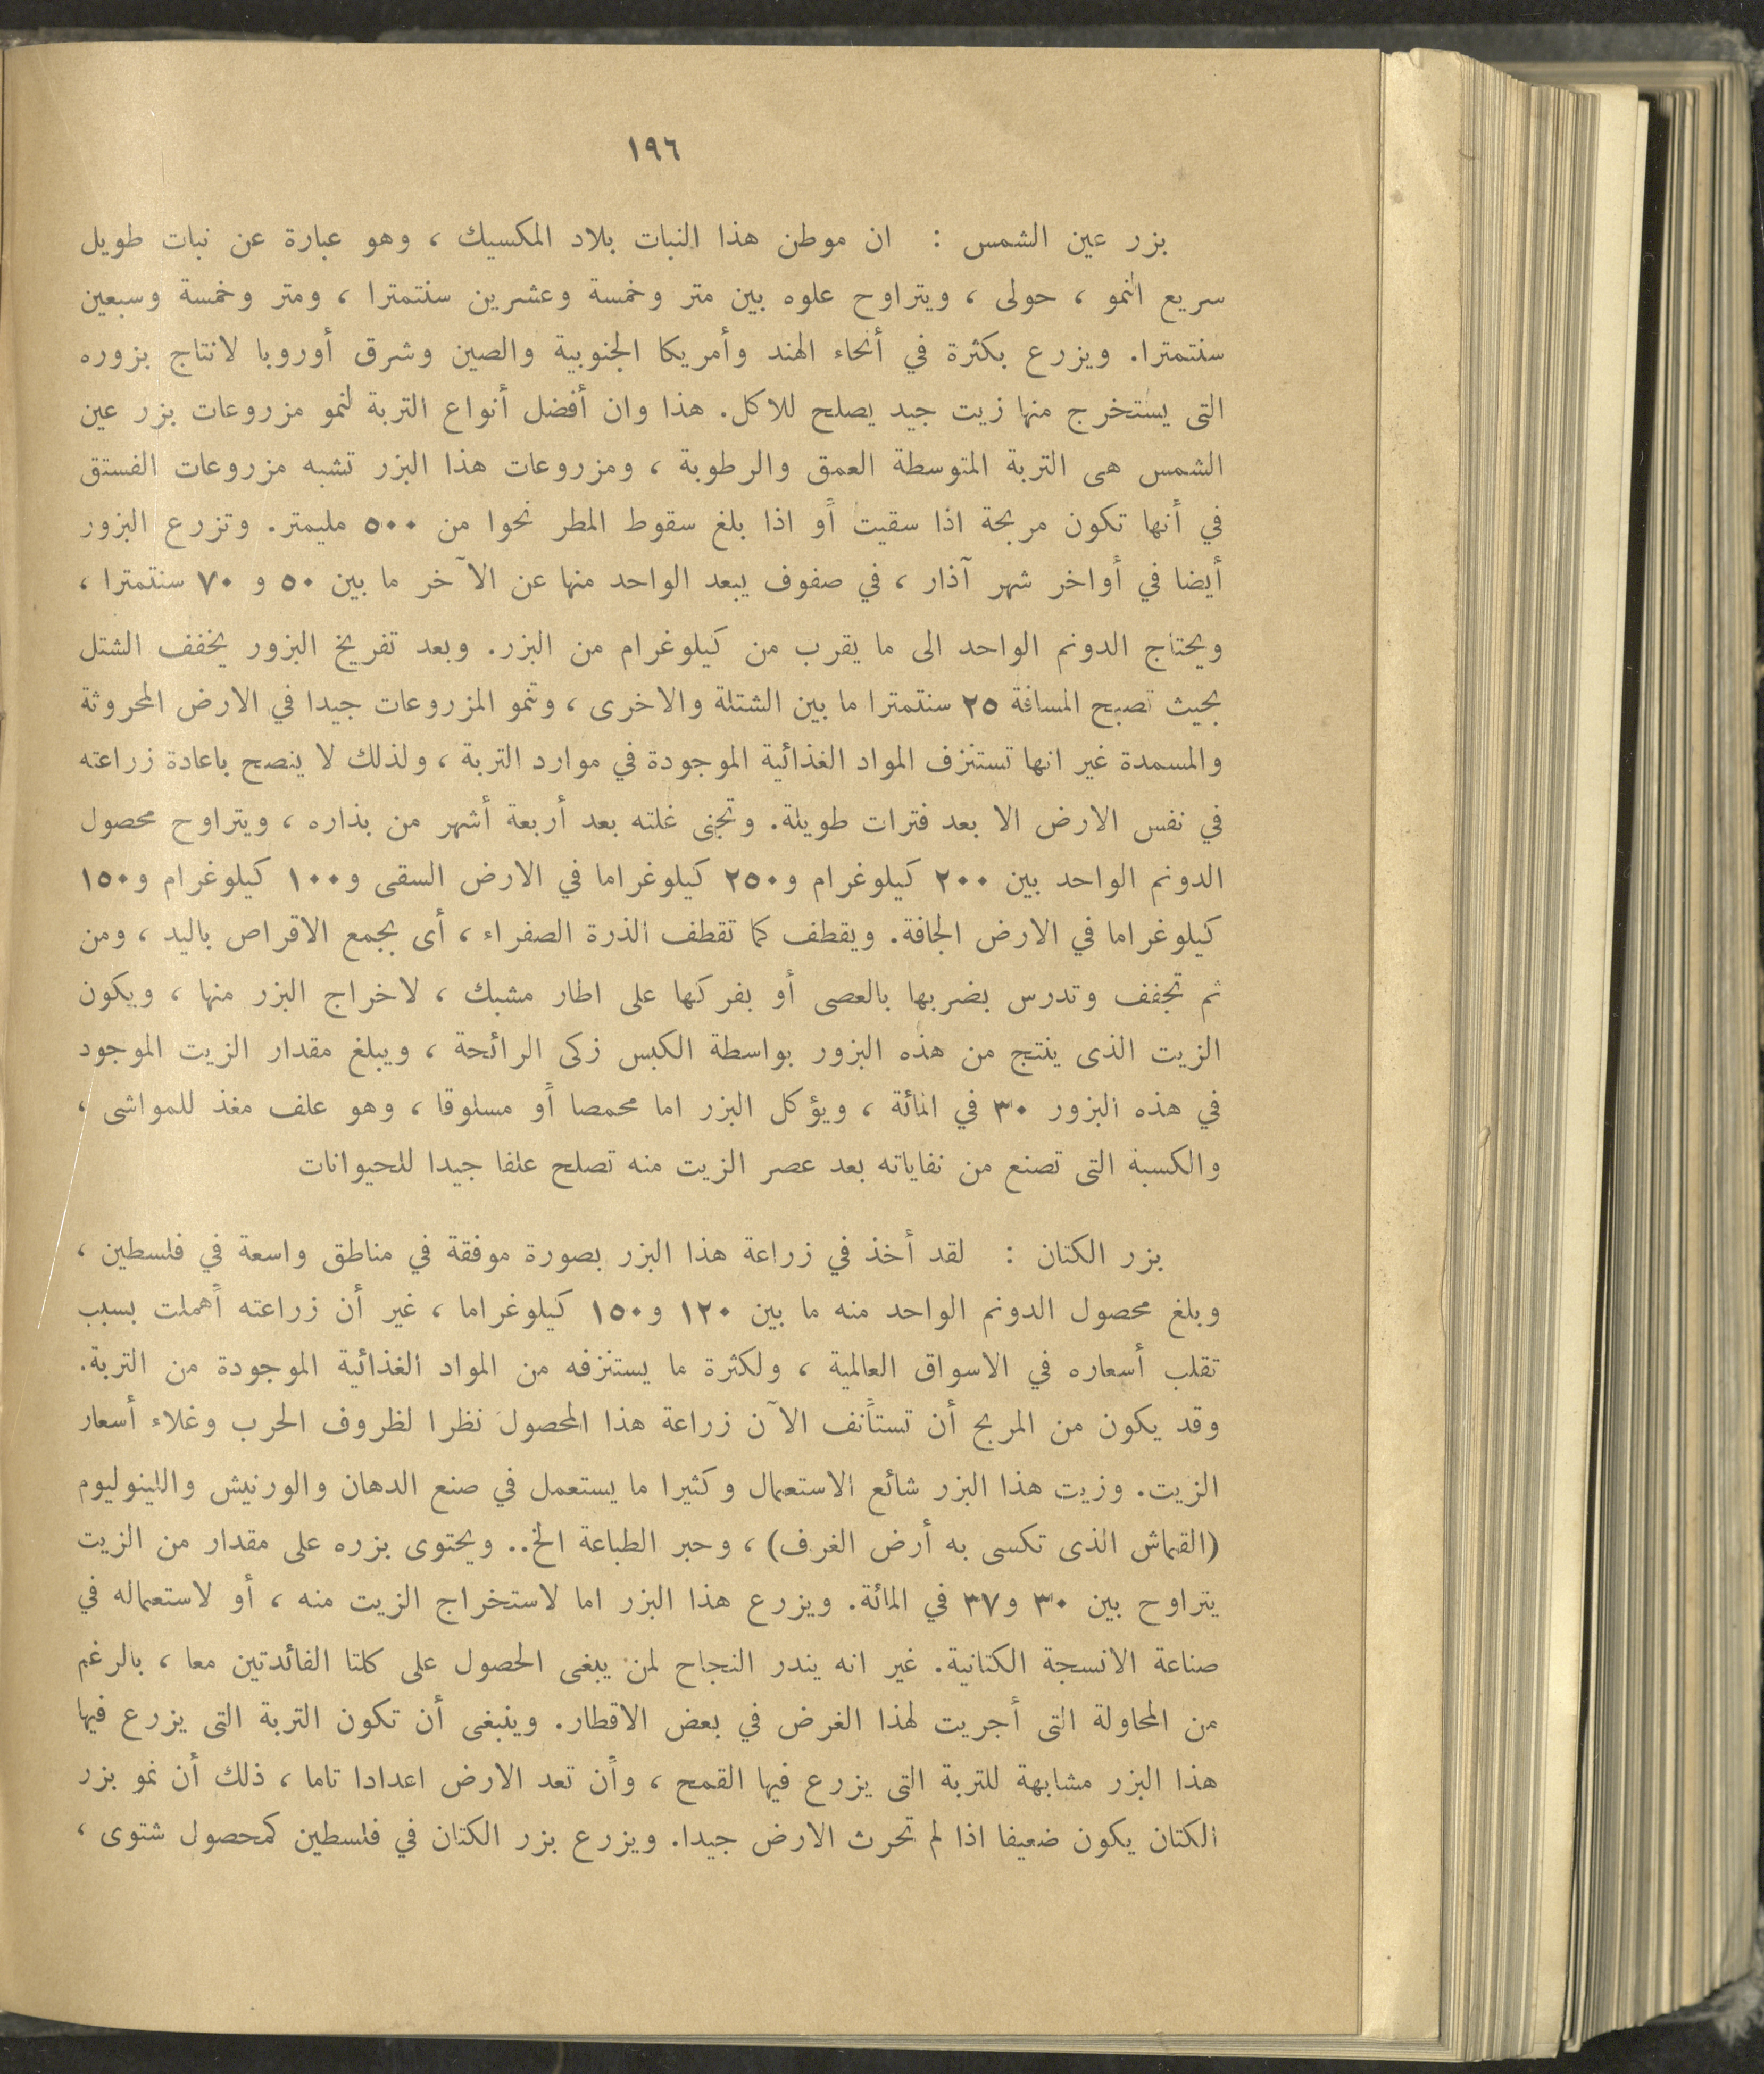 ١٩٦
بزر عين الشمس : ان موطن هذا النبات بلاد المكسيك ، وهو عبارة عن نبات طويل
سريع النمو ، حولى ، ويتراوح علوه بين متر وخمسة وعشرين سنتمترا ، ومتر وخمسة وسبعين
سنتمترا. ويزرع بكثرة في أنحاء الهند وأمريكا الجنوبية والصين وشرق أوروبا لانتاج بزوره
التى يستخرج منها زيت جيد يصلح للاكل. هذا وان أفضل أنواع التربة لنمو مزروعات بزر عين
الشمس هى التربة المتوسطة العمق والرطوبة ، ومزروعات هذا البزر تشبه مزروعات الفستق
في أنها تكون مربحة اذا سقيت أو اذا بلغ سقوط المطر نحوا من ٥٠٠ مليمتر. وتزرع البزور
أيضا في أواخر شهر آذار ، في صفوف يبعد الواحد منها عن الآخر ما بين ٥٠ و ٧٠ سنتمترا ،
ويحتاج الدونم الواحد الى ما يقرب من كيلوغرام من البزر. وبعد تفريخ البزور يخفف الشتل
بحيث تصبح المسافة ٢٥ سنتمترا ما بين الشتلة والاخرى ، وتنمو المزروعات جيدا في الارض المحروثة
والمسمدة غير انها تستنزف المواد الغذائية الموجودة في موارد التربة ، ولذلك لا ينصح باعادة زراعته
في نفس الارض الا بعد فترات طويلة. وتجنى غلته بعد أربعة أشهر من بذاره ، ويتراوح محصول
الدونم الواحد بين ٢٠٠ كيلوغرام و٢٥٠ كيلوغراما في الارض السقى و١٠٠ كيلوغرام و١٥٠
كيلوغراما في الارض الجافة. ويقطف كما تقطف الذرة الصفراء ، أى بجمع الاقراص باليد ، ومن
ثم تجفف وتدرس بضربها بالعصى أو بفركها على اطار مشبك ، لاخراج البزر منها ، ويكون
الزيت الذى ينتج من هذه البزور بواسطة الكبس زكى الرائحة ، ويبلغ مقدار الزيت الموجود
في هذه البزور ٣٠ في المائة ، ويؤكل البزر اما محمصا أو مسلوقا ، وهو علف مغذ للمواشى ،
والكسبة التى تصنع من نفاياته بعد عصر الزيت منه تصلح علفا جيدا للحيوانات
بزر الكتان : لقد أخذ في زراعة هذا البزر بصورة موفقة في مناطق واسعة في فلسطين ،
وبلغ محصول الدونم الواحد منه ما بين ١٢٠ و١٥٠ كيلوغراما ، غير أن زراعته أهملت بسبب
تقلب أسعاره في الاسواق العالمية ، ولكثرة ما يستنزفه من المواد الغذائية الموجودة من التربة.
وقد يكون من المربح أن تستأنف الآن زراعة هذا المحصول نظرا لظروف الحرب وغلاء أسعار
الزيت. وزيت هذا البزر شائع الاستعمال وكثيرا ما يستعمل في صنع الدهان والورنيش واللينوليوم
(القماش الذى تكسى به أرض الغرف) ، وحبر الطباعة الخ.. ويحتوى بزره على مقدار من الزيت
يتراوح بين ٣٠ و٣٧ في المائة. ويزرع هذا البزر اما لاستخراج الزيت منه ، أو لاستعماله في
صناعة الانسجة الكتانية. غير انه يندر النجاح لمن يبغى الحصول على كلتا الفائدتين معا ، بالرغم
من المحاولة التى أجريت لهذا الغرض في بعض الاقطار. وينبغى أن تكون التربة التى يزرع فيها
هذا البزر مشابهة للتربة التى يزرع فيها القمح ، وأن تعد الارض اعدادا تاما ، ذلك أن نمو بزر
الكتان يكون ضعيفا اذا لم تحرث الارض جيدا. ويزرع بزر الكتان في فلسطين كمحصول شتوى ،